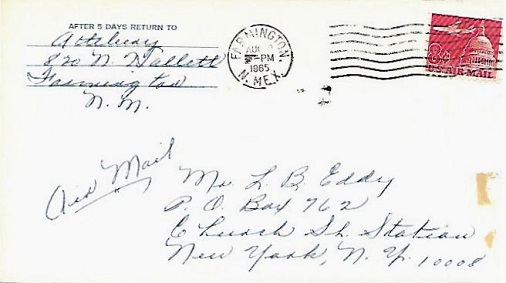 AFTER 5 DAYS RETURN TO
Atteberry
820 N. Wallett
Farmington
N. M.
FARMINGTON,
AUG
PM
1965
N. MEX.
8¢
U.S. AIR MAIL
Air Mail
Mr. L. B. Eddy
P. O. Box 762
Church St. Station
New York, N. Y. 10008